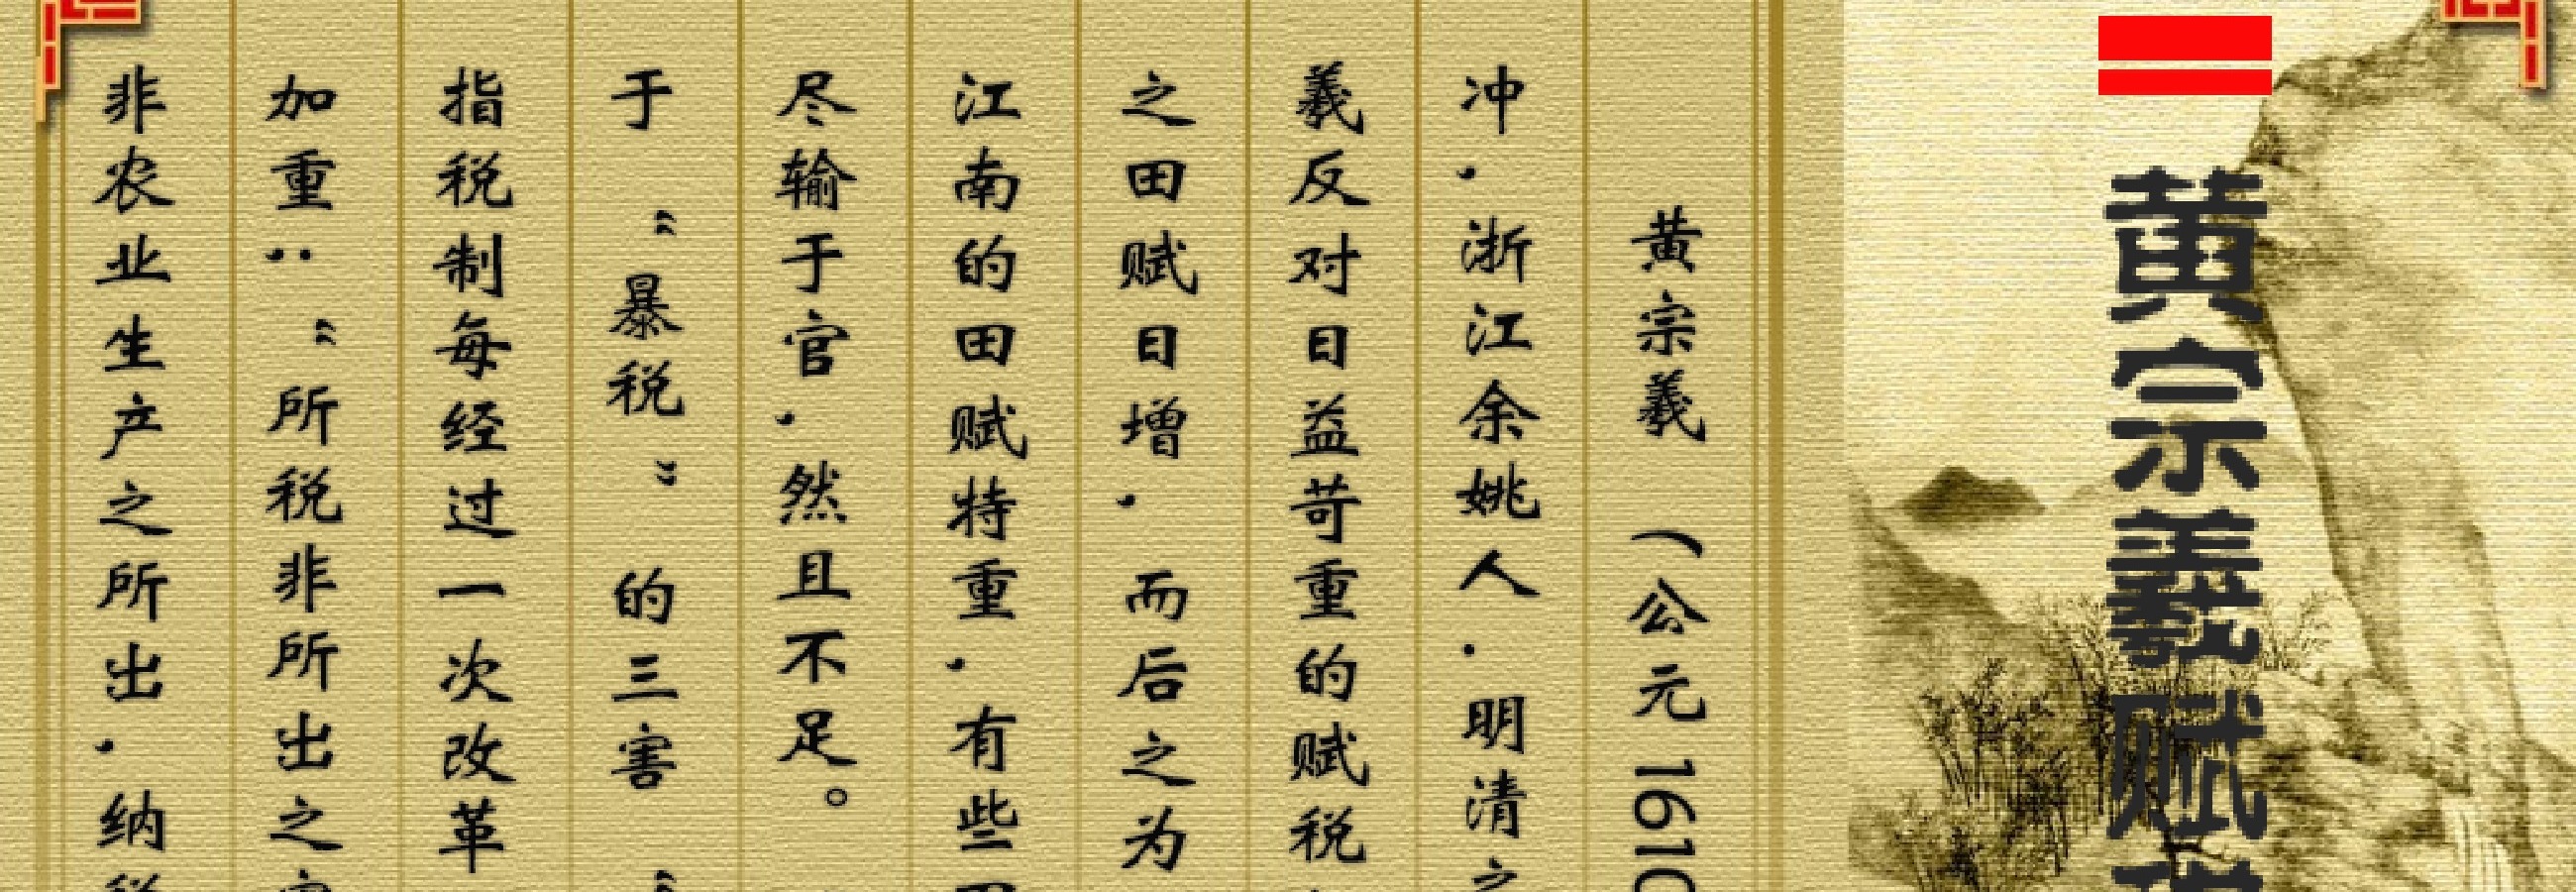 黄宗羲赋
黄宗羲（公元1610
冲，浙江余姚人，明清之
羲反对日益苛重的赋税
之田赋日增，而后之为
江南的田赋特重，有些田
尽输于官，然且不足。
于“暴税”的三害
指税制每经过一次改革
加重；“所税非所出之害
非农业生产之所出，纳税